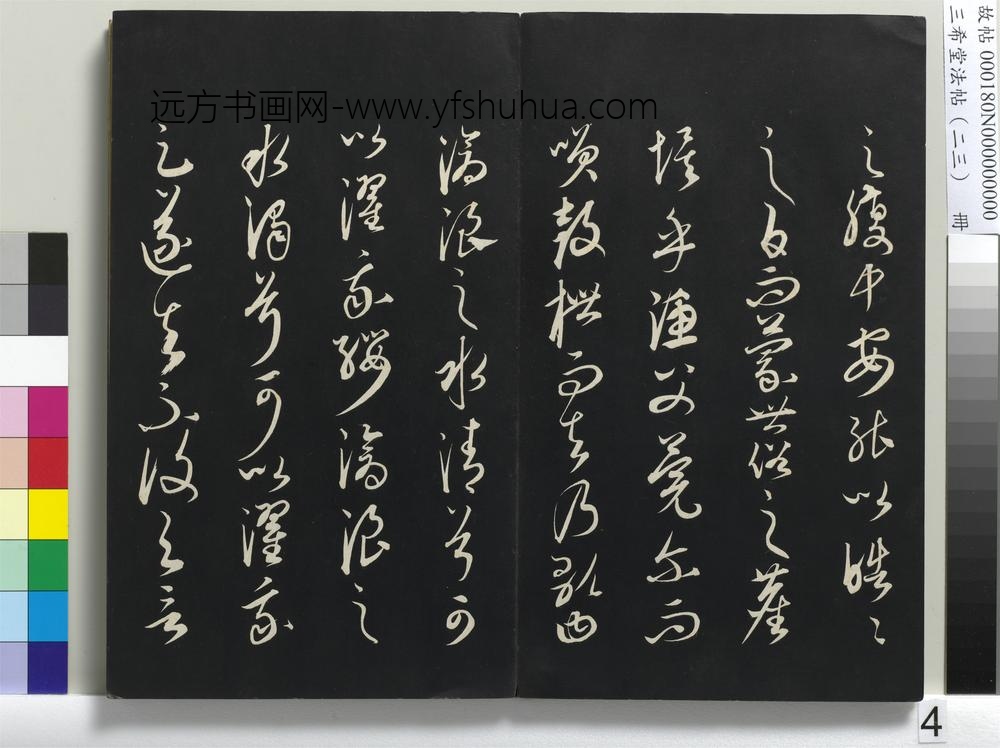 之腹中安能以皓〻
之白而蒙世俗之塵
埃乎漁父莞尔而
咲鼓枻而去乃歌曰
滄浪之水清兮可
以濯我纓滄浪之
水濁兮可以濯我
足遂去不復与言
远方书画网-www.yfshuhua.com
故帖 000180N000000000
三希堂法帖（二三） 冊
4